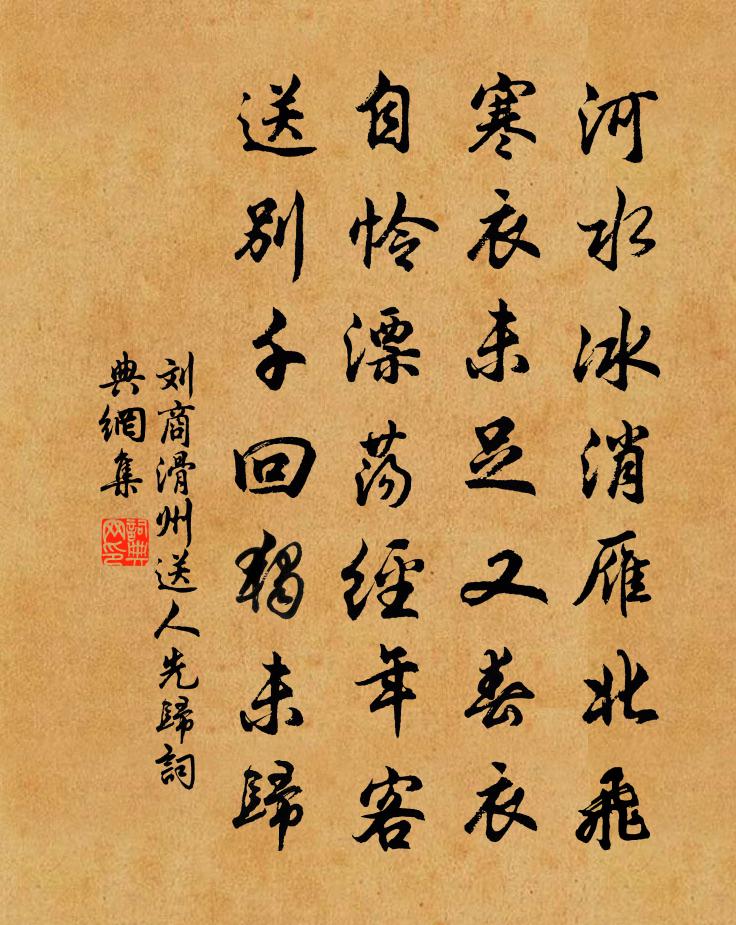 河水冰消雁北飛
寒衣未足又春衣
自怜漂荡經年客
送別千回獨未歸
刘商滑州送人先歸詞
典網集
詞典
网印